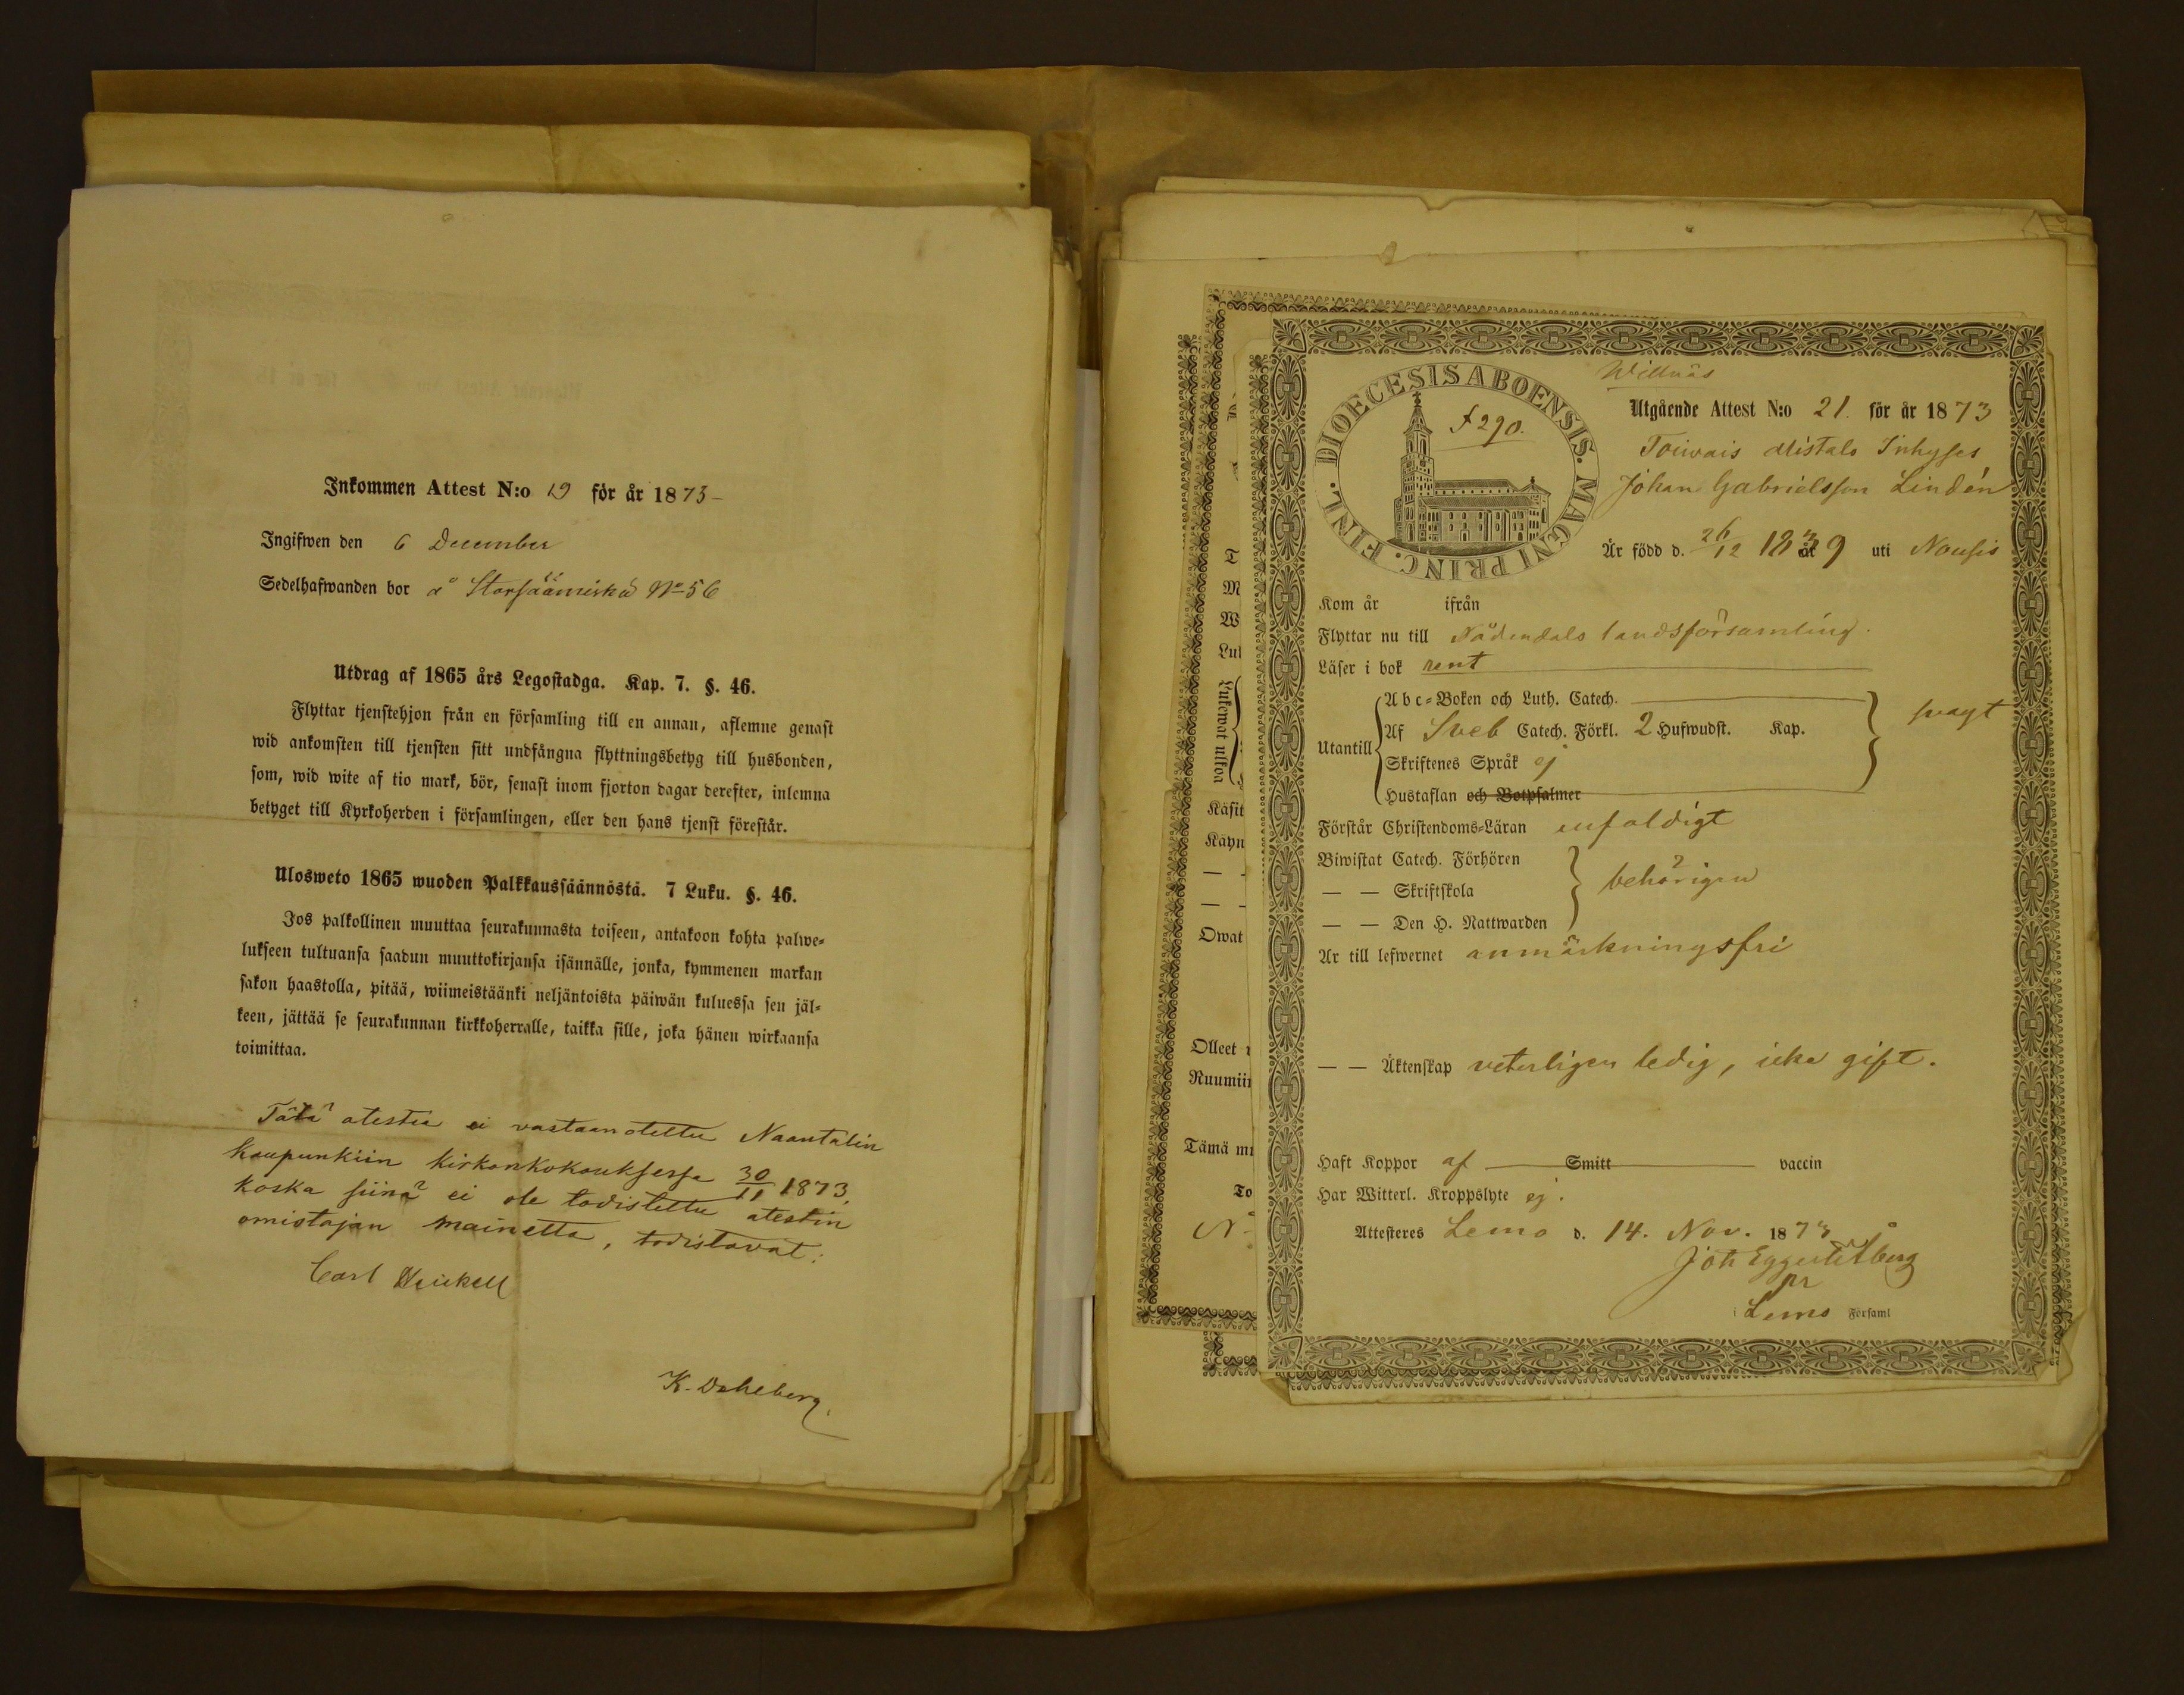 Inkommen Attest N:o 19 för år 1873-
Ingifwen den 6 December
Sedelhafwanden bor å Storsäämiskä No 56
Utdrag af 1865 års Legostadga. Kap. 7. §. 46.
Flyttar tjenstehjon från en församling till en annan, aflemne genast
wid ankomsten till tjensten sitt undfångna flyttningsbetyg till husbonden,
som, wid wite af tio mark, bör, senast inom fjorton dagar derefter, inlemna
betyget till Kyrkoherden i församlingen, eller den hans tjenst förestår.
Ulosweto 1865 wuoden Palkkaussäännöstä. 7 Luku. §. 46.
Jos palkollinen muuttaa seurakunnasta toiseen, antakoon kohta palwe=
lukseen tultuansa saadun muuttokirjansa isännälle, jonka, kymmenen markan
sakon haastolla, pitää, wiimeistäänki neljäntoista päiwän kuluessa sen jäl=
keen, jättää se seurakunnan kirkkoherralle, taikka sille, joka hänen wirkaansa
toimittaa.
Tätä atestia ei vastaanotettu Naantalin
kaupunkiin kirkonkokouksessa 30/11 1873,
koska siinä ei ole todistettu atestin
omistajan mainetta, todistavat:
Carl Heickell
K. Dahlberg.
Willnäs
DIOECESIS ABOENSIS. MAGNI PRINC. FINL.
f 290.
Utgående Attest N:o 21. för år 1873
Toivais Mistals Inhyses
Johan Gabrielsson Lindén
Är född d. 26/12 1839 uti Nousis
Kom år ifrån
Flyttar nu till Nådendals landsförsamling.
Läser i bok rent
Utantill
Abc=Boken och Luth. Catech.
Af Sveb Catech. Förkl. 2 Hufwudst. Kap.
svagt
Skriftenes Språk ej
Hustaflan och Botpsalmer
Förstår Christendoms=Läran enfaldigt
Biwistat Catech. Förhören
— — Skriftskola
behörigen
— — Den H. Nattwarden
Är till lefwernet anmärkningsfri
— — Äktenskap veterligen ledig, icke gift.
Haft Koppor af Smitt vaccin
Har Witterl. Kroppslyte ej.
Attesteres Lemo d. 14. Nov. 1873
Joh
pr
i Lemo Församl
Käsit
Käyn
Owat
Olleet
Ruumiin
Tämä
To
Lukewat ulkoa